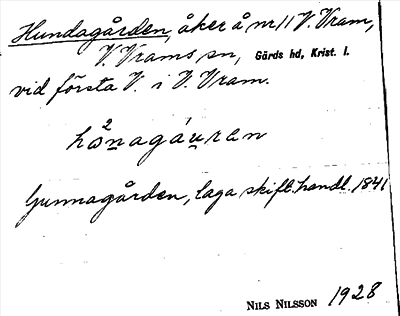 Hundagården, åker å nr 11 V. Vram,
V. Vrams sn, Gärds hd, Krist. l.
vid första V. i V. Vram.
Gunnagården, laga skift.handl. 1841
NILS NILSSON 1928